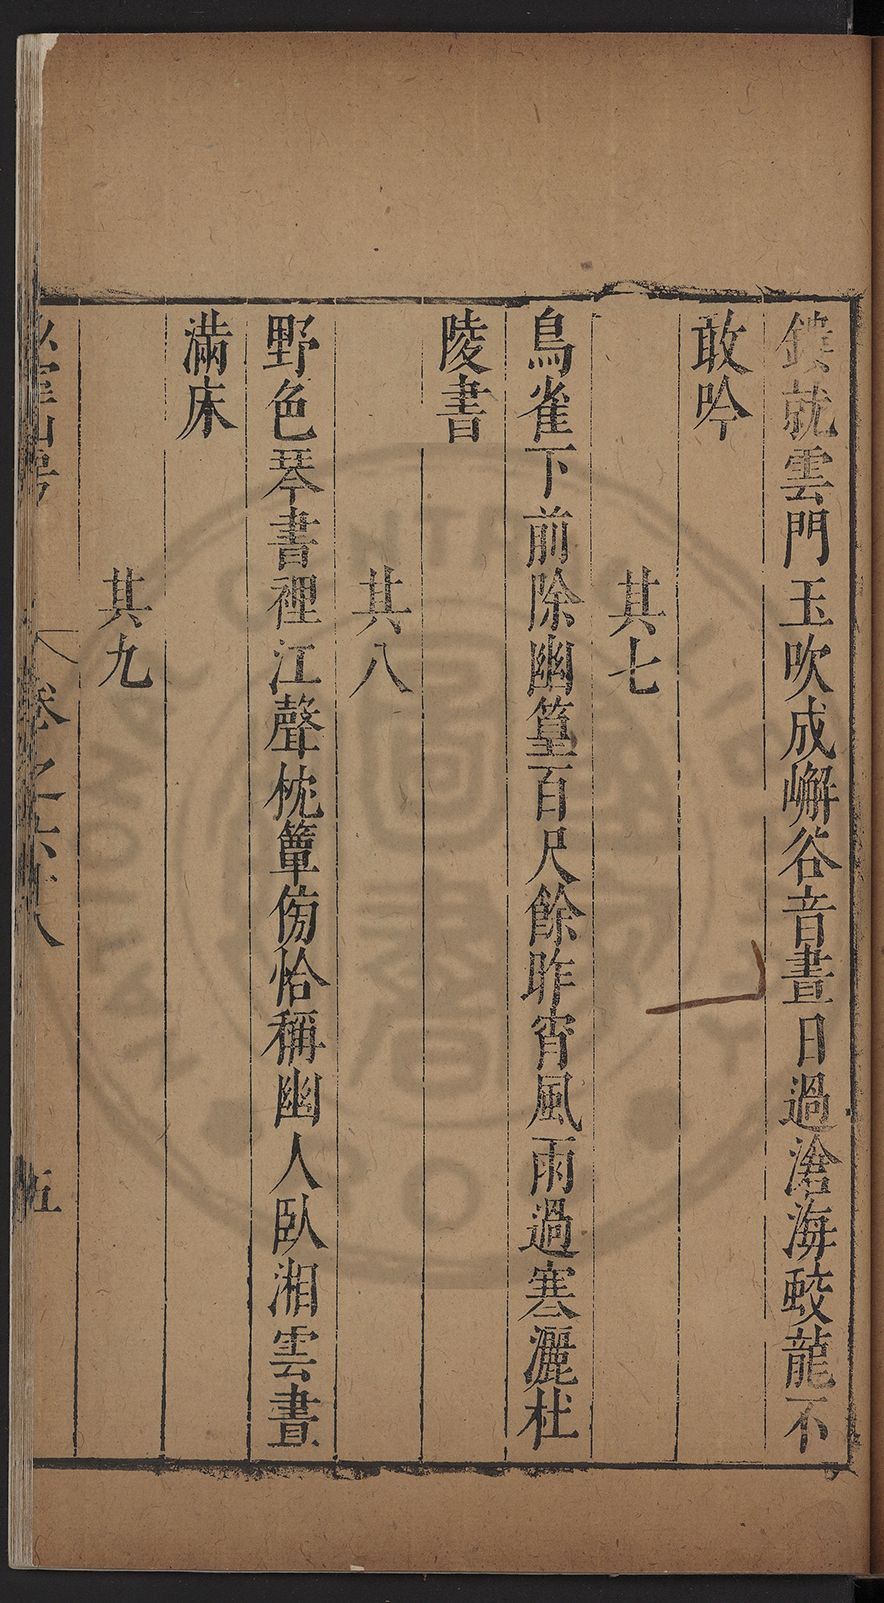 鏤就雲門玉吹成嶰谷音晝日過滄海蛟龍不
敢吟
其七
鳥雀下前除幽篁百尺餘昨宵風雨過寒灑杜
陵書
其八
野色琴書裡江聲枕簟傍恰稱幽人臥湘雲晝
滿床
其九
卷之六